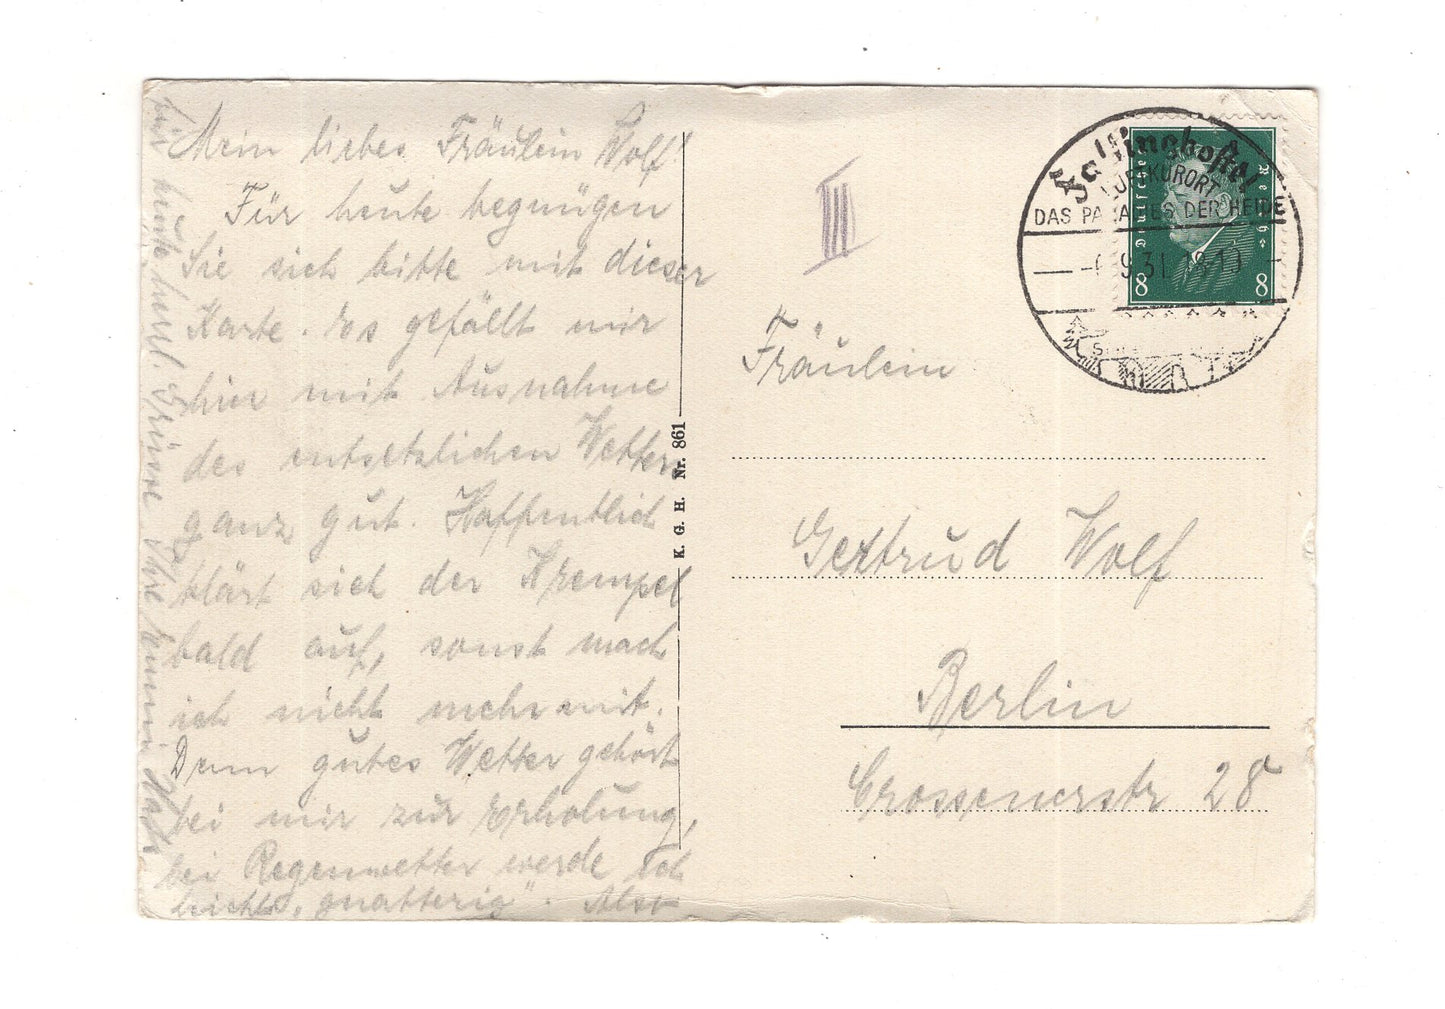 Mein liebes Fräulein Wolf!
Für heute begnügen
Sie sich bitte mit dieser
Karte. Es gefällt mir
hier mit Ausnahme
des entsetzlichen Wetters
ganz gut. Hoffentlich
klärt sich der Krempel
bald auf, sonst mach
ich nicht mehr mit.
Denn gutes Wetter gehört
bei mir zur Erholung,
bei Regenwetter werde ich
leicht „gnatterig". Also
für heute herzl. Grüsse Ihre
K. G. H. Nr. 861
III
Fallingbostel
LUFTKURORT
DAS PARADIES DER HEIDE
9.31. 18-19
Deutsches Reich
8 8
Fräulein
Gertrud Wolf
Berlin
Crossenerstr 28